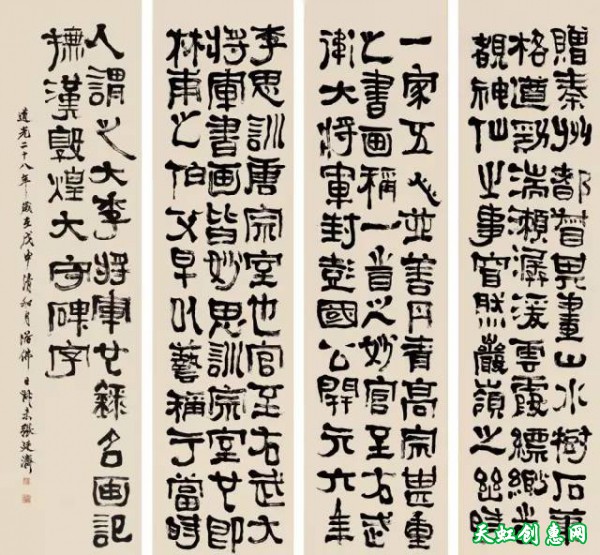 贈秦州都督其畫山水樹石筆
格遒勁湍瀨潺湲雲霞縹緲時
覩神仙之事窅然巖嶺之幽時
一家五人並善丹青高宗甚重
之書画稱一時之妙官至右武
衛大將軍封彭國公開元六年
李思訓唐宗室也官至右武大
將軍書画皆妙思訓宗室也即
林甫之伯父早以藝稱于當時
人謂之大李將軍也錄名画記
撫漢敦煌大守碑字
道光二十八年歲在戊申清和月浴佛日叔未張廷濟
天虹创意网